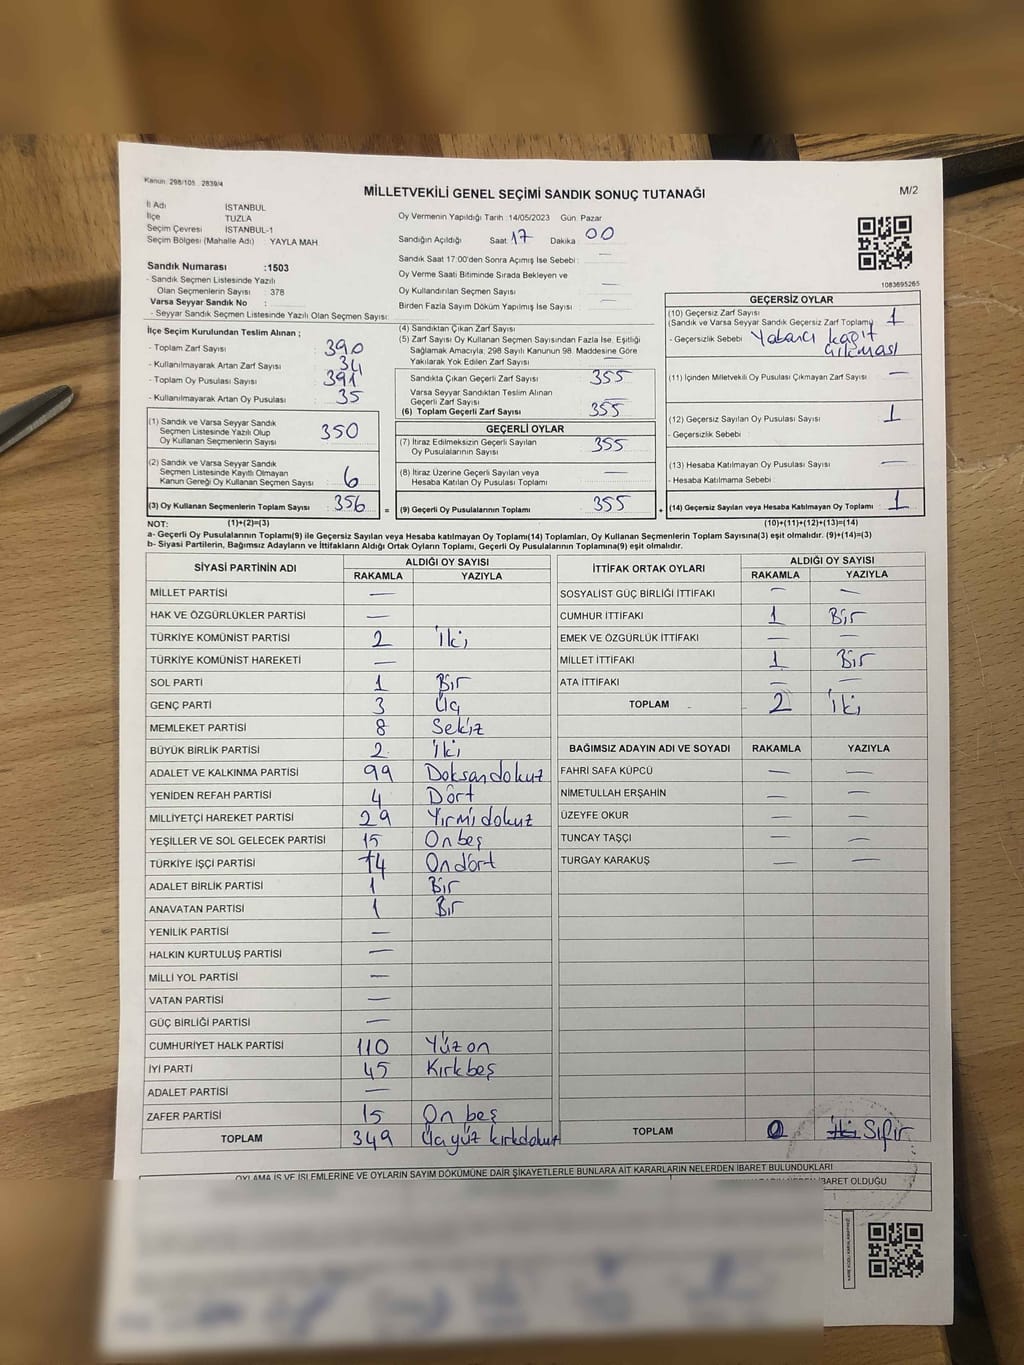 Kanun 298/105 2839/4
MİLLETVEKİLİ GENEL SEÇİMİ SANDIK SONUÇ TUTANAĞI
M/2
İl Adı İSTANBUL
İlçe TUZLA
Seçim Çevresi İSTANBUL-1
Seçim Bölgesi (Mahalle Adı) : YAYLA MAH
Sandık Numarası :1503
- Sandık Seçmen Listesinde Yazılı
Olan Seçmenlerin Sayısı : 378
Varsa Seyyar Sandık No :
- Seyyar Sandık Seçmen Listesinde Yazılı Olan Seçmen Sayısı:
Oy Vermenin Yapıldığı Tarih :14/05/2023 Gün Pazar
Sandığın Açıldığı Saat 17 Dakika 00
Sandık Saat 17:00'den Sonra Açımış İse Sebebi : —
Oy Verme Saati Bitiminde Sırada Bekleyen ve
Oy Kullandırılan Seçmen Sayısı : —
Birden Fazla Sayım Döküm Yapılmış İse Sayısı : —
1083695265
İlçe Seçim Kurulundan Teslim Alınan ;
- Toplam Zarf Sayısı : 390
- Kullanılmayarak Artan Zarf Sayısı : 34
- Toplam Oy Pusulası Sayısı : 391
- Kullanılmayarak Artan Oy Pusulası : 35
(1) Sandık ve Varsa Seyyar Sandık
Seçmen Listesinde Yazılı Olup
Oy Kullanan Seçmenlerin Sayısı : 350
(2) Sandık ve Varsa Seyyar Sandık
Seçmen Listesinde Kayıtlı Olmayan
Kanun Gereği Oy Kullanan Seçmen Sayısı : 6
(3) Oy Kullanan Seçmenlerin Toplam Sayısı : 356
(4) Sandıktan Çıkan Zarf Sayısı
(5) Zarf Sayısı Oy Kullanan Seçmen Sayısından Fazla İse, Eşitliği
Sağlamak Amacıyla; 298 Sayılı Kanunun 98. Maddesine Göre
Yakılarak Yok Edilen Zarf Sayısı : —
Sandıkta Çıkan Geçerli Zarf Sayısı : 355
Varsa Seyyar Sandıktan Teslim Alınan
Geçerli Zarf Sayısı
(6) Toplam Geçerli Zarf Sayısı : 355
GEÇERLİ OYLAR
(7) İtiraz Edilmeksizin Geçerli Sayılan
Oy Pusulalarının Sayısı : 355
(8) İtiraz Üzerine Geçerli Sayılan veya
Hesaba Katılan Oy Pusulası Toplamı : —
= (9) Geçerli Oy Pusulalarının Toplamı : 355
GEÇERSİZ OYLAR
(10) Geçersiz Zarf Sayısı
(Sandık ve Varsa Seyyar Sandık Geçersiz Zarf Toplamı) 1
- Geçersizlik Sebebi : Yabancı kağıt
çıkması
(11) İçinden Milletvekili Oy Pusulası Çıkmayan Zarf Sayısı : —
(12) Geçersiz Sayılan Oy Pusulası Sayısı : 1
- Geçersizlik Sebebi :
(13) Hesaba Katılmayan Oy Pusulası Sayısı : —
- Hesaba Katılmama Sebebi :
+ (14) Geçersiz Sayılan veya Hesaba Katılmayan Oy Toplamı : 1
NOT: (1)+(2)=(3) (10)+(11)+(12)+(13)=(14)
a- Geçerli Oy Pusulalarının Toplamı(9) ile Geçersiz Sayılan veya Hesaba Katılmayan Oy Toplamı(14) Toplamları, Oy Kullanan Seçmenlerin Toplam Sayısına(3) eşit olmalıdır. (9)+(14)=(3)
b- Siyasi Partilerin, Bağımsız Adayların ve İttifakların Aldığı Ortak Oyların Toplamı, Geçerli Oy Pusulalarının Toplamına(9) eşit olmalıdır.
SİYASİ PARTİNİN ADI ALDIĞI OY SAYISI
RAKAMLA YAZIYLA
MİLLET PARTİSİ —
HAK VE ÖZGÜRLÜKLER PARTİSİ —
TÜRKİYE KOMÜNİST PARTİSİ 2 İki
TÜRKİYE KOMÜNİST HAREKETİ —
SOL PARTİ 1 Bir
GENÇ PARTİ 3 Üç
MEMLEKET PARTİSİ 8 Sekiz
BÜYÜK BİRLİK PARTİSİ 2 İki
ADALET VE KALKINMA PARTİSİ 99 Doksandokuz
YENİDEN REFAH PARTİSİ 4 Dört
MİLLİYETÇİ HAREKET PARTİSİ 29 Yirmidokuz
YEŞİLLER VE SOL GELECEK PARTİSİ 15 Onbeş
TÜRKİYE İŞÇİ PARTİSİ 14 Ondört
ADALET BİRLİK PARTİSİ 1 Bir
ANAVATAN PARTİSİ 1 Bir
YENİLİK PARTİSİ —
HALKIN KURTULUŞ PARTİSİ —
MİLLİ YOL PARTİSİ —
VATAN PARTİSİ —
GÜÇ BİRLİĞİ PARTİSİ —
CUMHURİYET HALK PARTİSİ 110 Yüzon
İYİ PARTİ 45 Kırkbeş
ADALET PARTİSİ —
ZAFER PARTİSİ 15 On beş
TOPLAM 349 Üçyüz kırkdokuz
İTTİFAK ORTAK OYLARI ALDIĞI OY SAYISI
RAKAMLA YAZIYLA
SOSYALİST GÜÇ BİRLİĞİ İTTİFAKI — —
CUMHUR İTTİFAKI 1 Bir
EMEK VE ÖZGÜRLÜK İTTİFAKI — —
MİLLET İTTİFAKI 1 Bir
ATA İTTİFAKI — —
TOPLAM 2 İki
BAĞIMSIZ ADAYIN ADI VE SOYADI RAKAMLA YAZIYLA
FAHRİ SAFA KÜPCÜ — —
NİMETULLAH ERŞAHİN — —
ÜZEYFE OKUR — —
TUNCAY TAŞÇI — —
TURGAY KARAKUŞ — —
TOPLAM 0 İki Sıfır
OYLAMA İŞ VE İŞLEMLERİNE VE OYLARIN SAYIM DÖKÜMÜNE DAİR ŞİKAYETLERLE BUNLARA AİT KARARLARIN NELERDEN İBARET BULUNDUKLARI
İBARET OLDUĞU